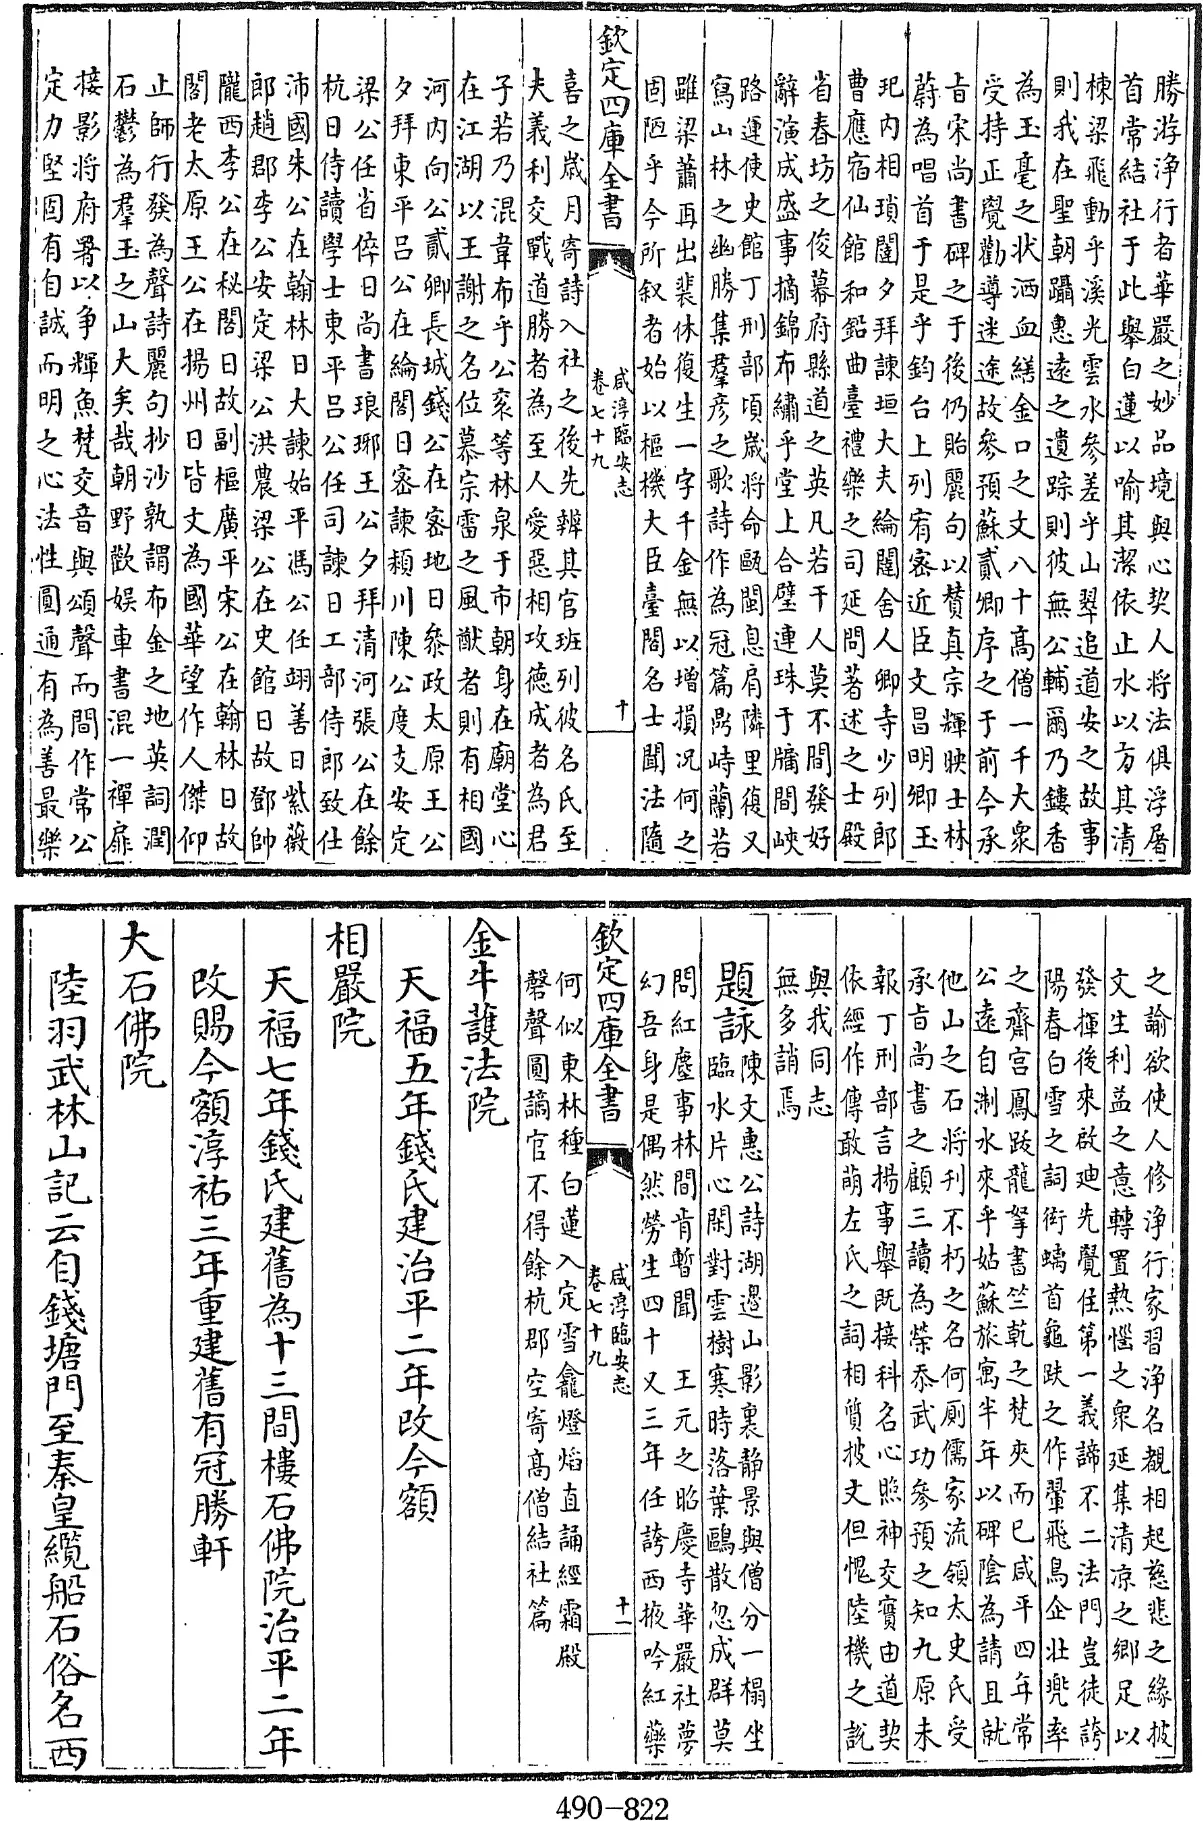 勝游浄行者華嚴之妙品境與心契人將法俱浮屠
首常結社于此舉白蓮以喻其潔依止水以方其清
棟梁飛動乎溪光雲水參差乎山翠追道安之故事
則我在聖朝躡惠遠之遺踪則彼無公輔爾乃鏤香
為玉毫之状洒血繕金口之文八十髙僧一千大衆
受持正覺勸導迷途故參預蘇貳卿序之于前今承
旨宋尚書碑之于後仍貽麗句以賛真宗輝映士林
蔚為唱首于是乎鈞台上列宥宻近臣文昌明卿玉
玘内相瑣闥夕拜諫垣大夫綸闈舍人卿寺少列郎
曹應宿仙館和鉛曲臺禮樂之司延閣著述之士殿
省春坊之俊幕府縣道之英凡若干人莫不間發好
辭演成盛事摛錦布繡乎堂上合璧連珠于牖間峽
路運使史館丁刑部頃嵗將命甌閩息肩隣里復又
寫山林之幽勝集羣彦之歌詩作為冠篇鼎峙蘭若
雖梁蕭再出裴休復生一字千金無以增損况何之
固陋乎今所叙者始以樞機大臣臺閣名士聞法隨
欽定四庫全書
咸淳臨安志
卷七十九
十
喜之嵗月寄詩入社之後先辨其官班列彼名氏至
夫義利交戰道勝者為至人愛惡相攻徳成者為君
子若乃混韋布乎公衮等林泉于市朝身在廟堂心
在江湖以王謝之名位慕宗雷之風猷者則有相國
河内向公貳卿長城錢公在宻地日叅政太原王公
夕拜東平吕公在綸閣日宻諫頴川陳公度支安定
梁公任省倅日尚書琅琊王公夕拜清河張公在餘
杭日侍讀學士東平吕公任司諫日工部侍郎致仕
沛國朱公在翰林日大諫始平馮公任翊善日紫薇
郎趙郡李公安定梁公洪農梁公在史館日故鄧帥
隴西李公在秘閣日故副樞廣平宋公在翰林日故
閣老太原王公在揚州日皆文為國華望作人傑仰
止師行發為聲詩麗句抄沙孰謂布金之地英詞潤
石鬱為羣玉之山大矣哉朝野歡娱車書混一禪扉
接影將府署以争輝魚梵交音與頌聲而間作常公
定力堅固有自誠而明之心法性圓通有為善最樂
之諭欲使人修浄行家習浄名覩相起慈悲之緣披
文生利益之意轉置熱惱之衆延集清凉之鄉足以
發揮後來啟廸先覺住第一義諦不二法門豈徒誇
陽春白雪之詞銜螭首龜趺之作翬飛鳥企壯兠率
之齋宫鳳跂龍拏書竺乾之梵夾而已咸平四年常
公遠自淛水來乎姑蘇旅寓半年以碑陰為請且就
他山之石將刋不朽之名何厠儒家流領太史氏受
承旨尚書之顧三讀為榮忝武功參預之知九原未
報丁刑部言揚事舉既接科名心照神交實由道契
依經作傳敢萌左氏之詞相質披文但愧陸機之說
與我同志
無多誚焉
題詠
陳文惠公詩湖邉山影裏静景與僧分一榻坐
臨水片心閑對雲樹寒時落葉鷗散忽成群莫
問紅塵事林間肯暫聞　王元之昭慶寺華嚴社夢
幻吾身是偶然勞生四十又三年任誇西掖吟紅藥
欽定四庫全書
咸淳臨安志
卷七十九
十一
何似東林種白蓮入定雪龕燈焰直誦經霜殿
磬聲圓謫官不得餘杭郡空寄髙僧結社篇
金牛護法院
天福五年錢氏建治平二年改今額
相嚴院
天福七年錢氏建舊為十三間樓石佛院治平二年
改賜今額淳祐三年重建舊有冠勝軒
大石佛院
陸羽武林山記云自錢塘門至秦皇纜船石俗名西
490-822